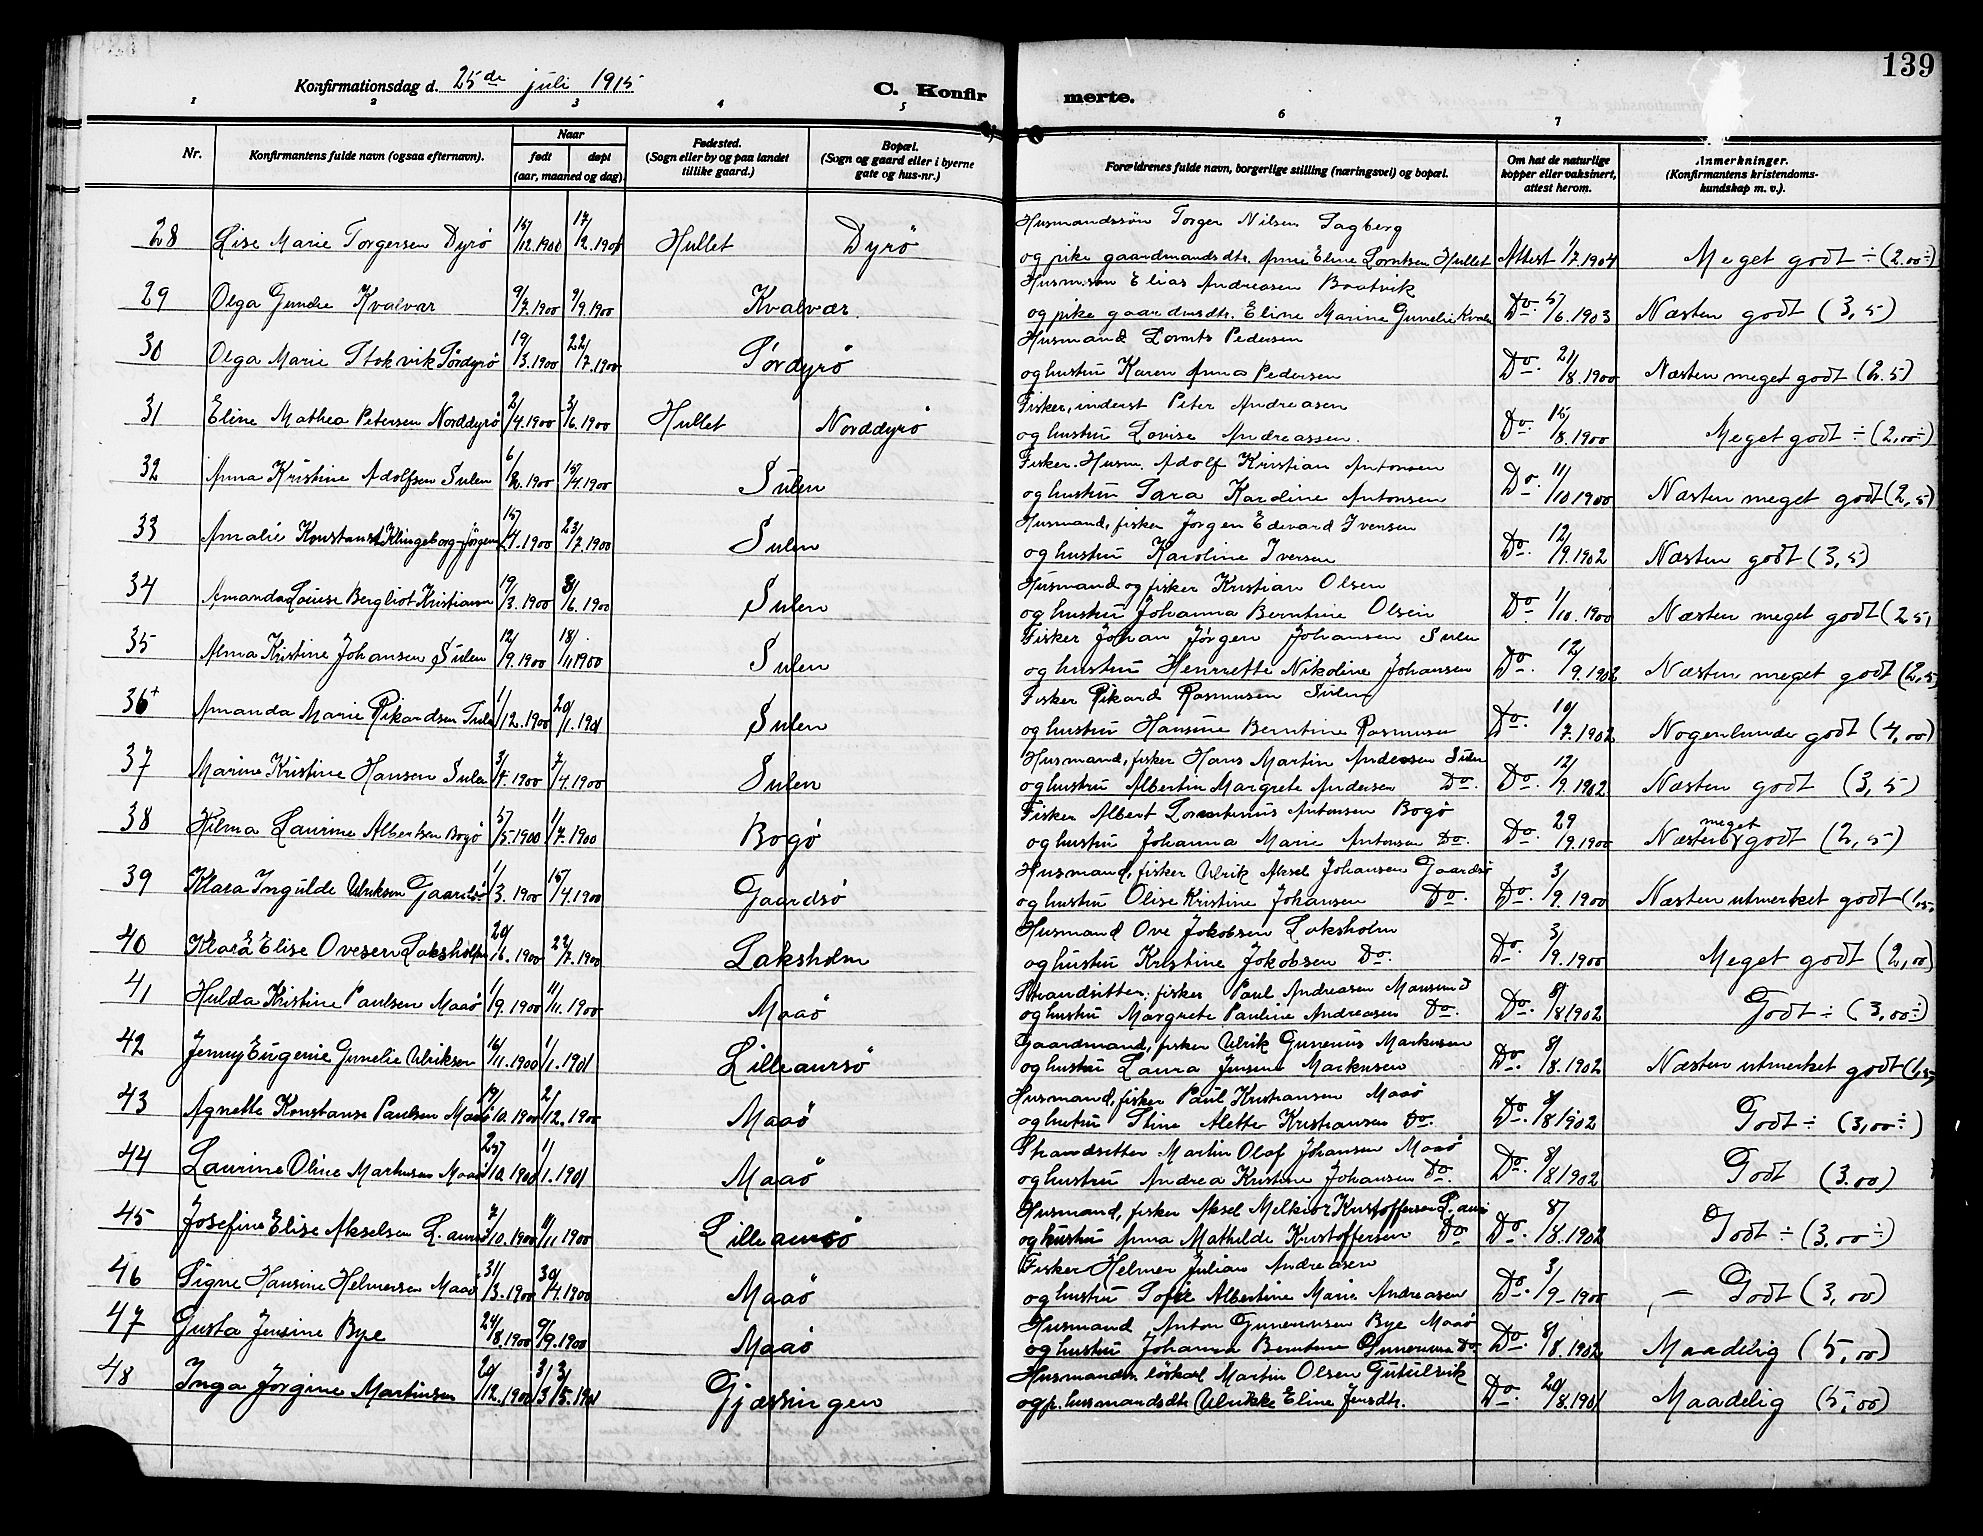 139
Konfirmationsdag d. 25de juli 1915
C. Konfirmerte.
1 2 3 4 5 6 7
Nr. Konfirmantens fulde navn (ogsaa efternavn). Naar født døpt (aar, maaned og dag). Fødested. (Sogn eller by og paa landet tillike gaard.) Bopæl. (Sogn og gaard eller i byerne gate og hus-nr.) Forældrenes fulde navn, borgerlige stilling (næringsvei) og bopæl. Om hat de naturlige kopper eller vaksinert, attest herom. Anmerkninger. (Konfirmantens kristendomskundskap m. v.).
Husmandssøn Torger Nilsen Sagberg
28 Lise Marie Torgersen Dyrö 15/12.1900 17/2.1901 Hullet Dyrö og pike gaardmandsdtr. Anne Eline Lorntsen Hullet Attest 1/7.1904 Meget godt ÷ (2.00÷)
Husm.søn Elias Andreasen Baatvik
29 Olga Gunelie Kvalvær 9/7.1900 9/9.1900 Kvalvær. og pike gaardmsdtr. Eline Marine Gunelie Kvalv Do. 5/6.1903 Næsten godt (3,5)
Husmand Lornts Pedersen
30 Olga Marie Stokvik Sördyrö 19/3.1900 22/7.1900 Sördyrö og hustru Karen Anna Pedersen Do. 21/8.1900 Næsten meget godt (2.5)
Fisker, inderst Peter Andreasen
31 Eline Mathea Petersen Norddyrö 2/4.1900 3/6.1900 Hullet Norddyrö og hustru Lovise Andreassen. Do. 15/8.1900 Meget godt ÷ (2,00÷)
Fisker. Husm. Adolf Kristian Antonsen
32 Anna Kristine Adolfsen Sulen 6/2.1900 15/4.1900 Sulen og hustru Sara Kardine Antonsen Do. 11/10 1900 Næsten meget godt (2,5)
Husmand, fisker Jörgen Edevard Iversen
33 Amalie Konstanse Klingeborg Jörgens 15/4.1900 23/7.1900 Sulen og hustru Karoline Iversen Do. 12/9.1902 Næsten godt (3,5)
Husmand og fisker Kristian Olsen
34 Amanda Louise Bergliot Kristiansen 19/3.1900 3/6.1900 Sulen og hustru Johanna Berntine Olsen Do. 1/10.1900 Næsten meget godt (2,5)
Fisker Johan Jörgen Johansen Sulen
35 Alma Kristine Johansen Sulen 12/9.1900 18/11 1900 Sulen og hustru Henriette Nikoline Johansen Do. 12/9.1902 Næsten meget godt (2,5)
Fisker Rikard Rasmusen Sulen
36+ Amanda Marie Rikardsen Sulen 1/12.1900 20/1.1901 Sulen og hustru Hansine Berntine Rasmusen Do. 10/7.1902 Nogenlunde godt (4,00)
Husmand, fisker Hans Martin Andersen Sulen
37 Marine Kristine Hansen Sulen 3/1.1900 7/4.1900 Sulen og hustru Albertin Margrete Andersen Do. Do. 12/9.1902 Næsten godt (3,5)
Fisker Albert Lorentinus Antonsen Bogö
38 Hilma Laurine Albertsen Bogö 5/5.1900 1/7.1900 Bogö og hustru Johanna Marie Antonsen Do. Do. 29/9.1900 Næsten meget godt (2,5)
Husmand, fisker Ulrik Aksel Johansen Gaardsö
39 Klara Ingulde Ulriksen Gaardsö 1/3.1900 15/4.1900 Gaardsö og hustru Olise Kristine Johansen Do. Do. 3/9.1900 Næsten utmerket godt (1,5)
Husmand Ove Jokobsen Laksholm
40 Klara Elise Ovesen Laksholm 20/6.1900 22/7.1900 Laksholm og hustru Kristine Jokobsen Do. Do. 3/9.1900 Meget godt (2,00)
Strandsitter, fisker Paul Andreasen Mausund
41 Hulda Kristine Paulsen Maaö 1/9.1900 11/11.1900 Maaö og hustru Margrete Pauline Andreasen Do. Do. 8/8 1902 Godt ÷ (3,00÷)
Gaardmand, fisker Ulrik Gunerius Markusen
42 Jenny Eugenie Gunelie Ulriksen 16/11.1900 1/1.1901 Lilleaursö og hustru Laura Jensine Markusen Do. 8/8.1902 Næsten utmerket godt (1,5)
Husmand, fisker Paul Kristiansen Maaö
43 Agnette Konstanse Paulsen Maaö 19/10.1900 2/12.1900 Maaö og hustru Stine Alette Kristiansen Do. Do. 8/8 1902 Godt ÷ (3,00÷)
Strandsitter Martin Olaf Johansen Maaö
44 Laurine Oline Markusen Maaö 25/10.1900 1/1.1901 Maaö og hustru Andrea Kristine Johansen Do. Do. 8/8.1902 Godt (3.00)
Husmand, fisker Aksel Melkior Kristoffersen L. aursö
45 Josefine Elise Akselsen L. aursö 7/10.1900 11/11 1900 Lilleaursö og hustru Anna Mathilde Kristoffersen Do Do. 8/8.1902 Godt ÷ (3.00÷)
Fisker Helmer Julian Andreasen
46 Signe Hansine Helmersen Maaö 31/3.1900 30/4.1900 Maaö og hustru Sofie Albertine Marie Andreasen Do. 3/9-1900 — Godt (3,00)
Husmand Anton Gunerinsen Bye Maaö
47 Gusta Jensine Bye 24/8.1900 9/9.1900 Maaö og hustru Johanna Berntine Gunerinsen Do Do. 8/8.1902 Maadelig (5,00)
Husmandss. löskarl Martin Olsen Gutulsvik
48 Inga Jörgine Martinsen 20/12.1900 3/5.1901 Gjæsingen og p. husmandsdtr Ulrikke Eline Jensdtr. Do. 20/8.1901 Maadelig (5,00)